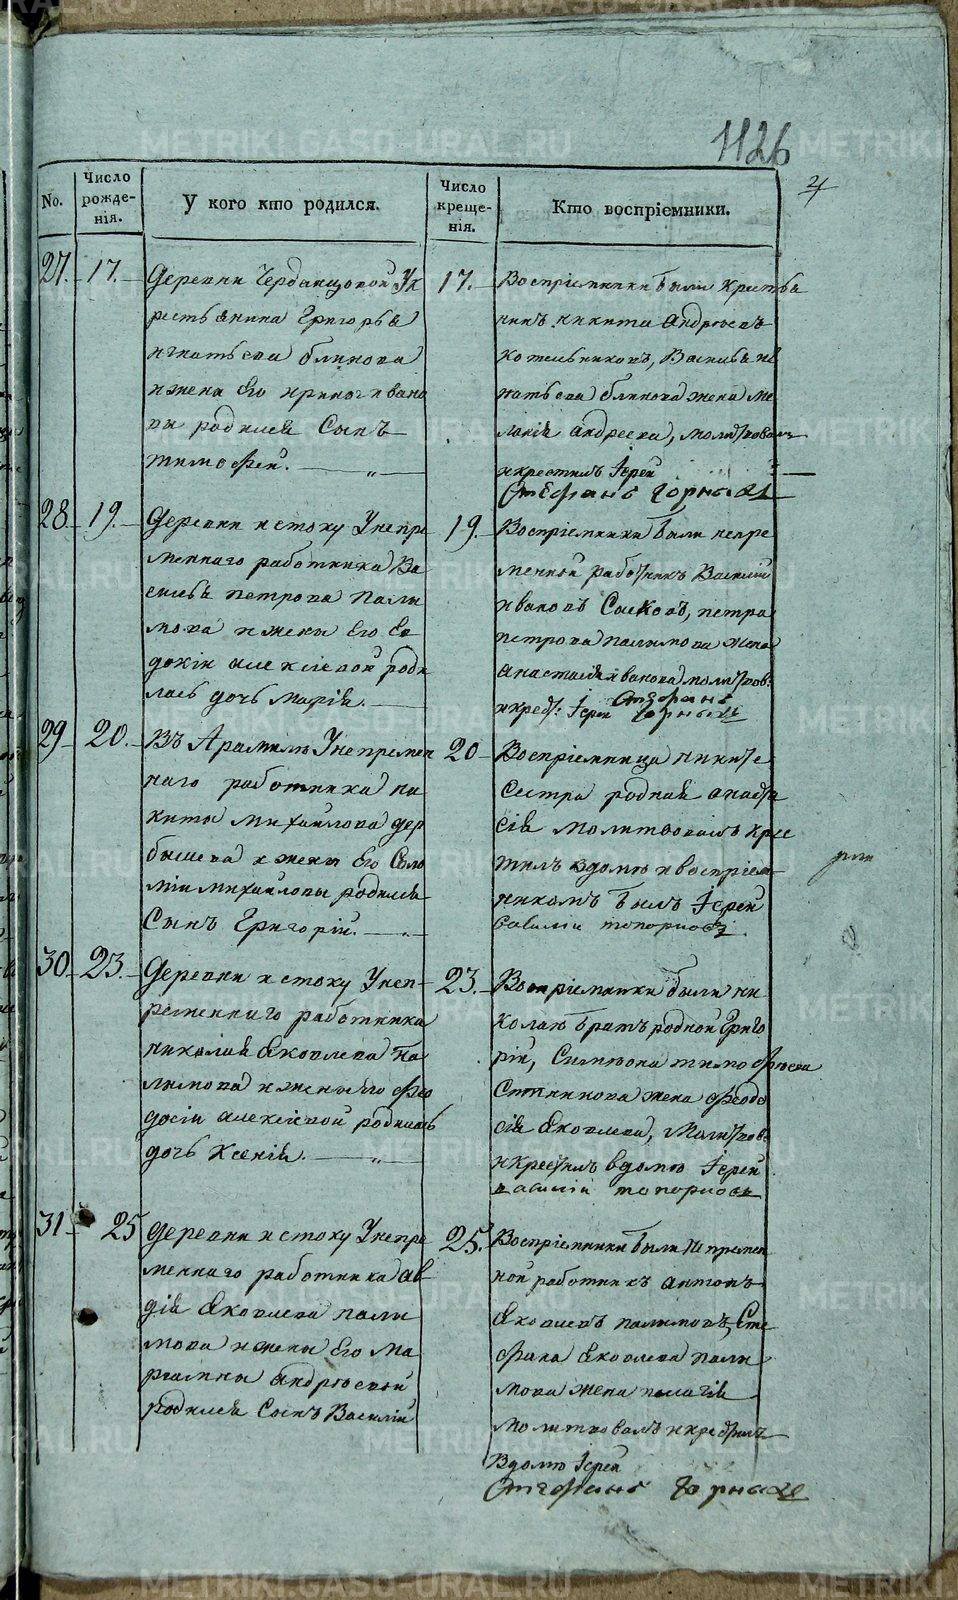 1126
4
No.
Число рожде-нія.
У кого кто родился.
Число креще-нія.
Кто воспріемники.
27. 17.
Деревни Чердынцовой Ук
рестьянина Григорья
игнатьева блинова
и жена Его ирины ивано
вы родился Сынъ
тимофей.
17.
Воспріемники были крестья
нинъ никита Андреевъ
котельниковъ, Василья иг
натьева блинова жена ме
ланія андреева, молитвовалъ
и крестилъ Іерей
Стефанъ Горныхъ
28. 19.
Деревни истоку Унепре
менного работника Ва
силья петрова Пали
мова и жены Его Ев
докіи алексіевой роди
лась дочь Марія.
19.
Воспріемники были непре
менной работникъ Василий
ивановъ Сысковъ, петра
петрова палимова жена
анастасия иванова молитвов:
и крест: Іерей Стефанъ
Горныхъ
29 20.
Въ Арамиль Унепремен
наго работника ни
киты михайлова дер
бышева и жены Его Соло
міи михайловы родился
Сынъ Григорій.
20
Воспріемница никите
Сестра родная анаста
сія Молитвовалъ крес
тилъ вдомю и воспріем
никомъ былъ Іерей
Василій топорковъ
30. 23.
Деревни истоку Унеп-
ременнаго работника
николая Яковлева Па
лимова и жены Его Фео
досіи алексіевой родилась
дочь Ксенія.
23.
Воспріемники были ни
колаю братъ родной Григо
рій, Симеона тимофеева
жена Феодо
сія Яковлева, Молитвов:
и крестилъ вдомю Іерей
василій топорковъ
31 25
Деревни истоку Унепре
меннаго работника ав
дія Яковлева пали
мова и жены Его Ма
ріамны андреевой
родился Сынъ Василій
25.
Воспріемники были Непремен
ной работникъ антонъ
Яковлевъ палимовъ, Сте
фана Яковлева пали
мова жена пелагія
Молитвовалъ и крестилъ
Вдомю Іерей
Стефанъ Горныхъ
METRIKI.GASO-URAL.RU